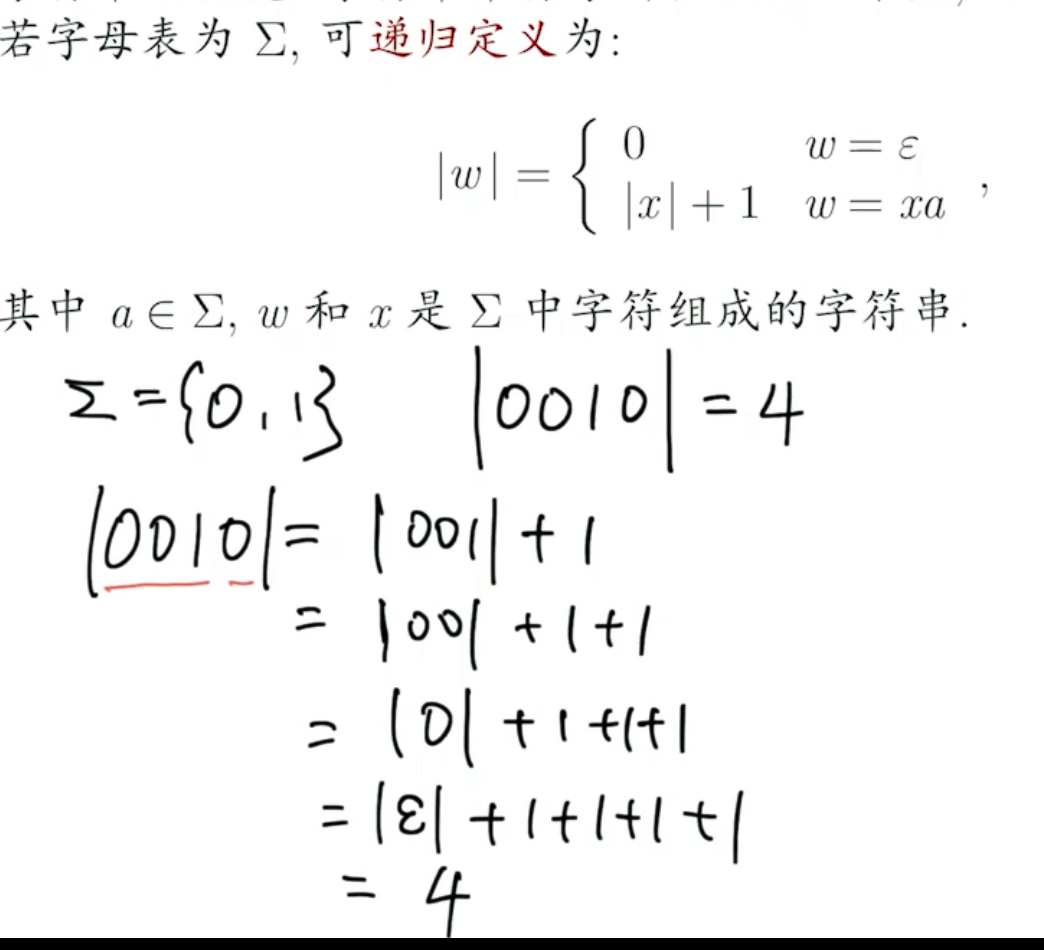 若字母表为 Σ, 可递归定义为:
|w| = { 0 w = ε
|x| + 1 w = xa ,
其中 a ∈ Σ, w 和 x 是 Σ 中字符组成的字符串.
Σ = {0, 1} |0010| = 4
|0010| = |001| + 1
= |00| + 1 + 1
= |0| + 1 + 1 + 1
= |ε| + 1 + 1 + 1 + 1
= 4